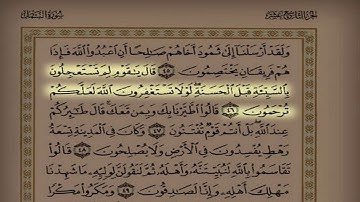 الجزء التاسع عشر
سورة النمل
ولقد أرسلنا إلى ثمود أخاهم صالحا أن اعبدوا الله فإذا
هم فريقان يختصمون ٤٥ قال يقوم لم تستعجلون
بالسيئة قبل الحسنة لولا تستغفرون الله لعلكم
ترحمون ٤٦ قالوا اطيرنا بك وبمن معك قال طئركم
عند الله بل أنتم قوم تفتنون ٤٧ وكان في المدينة تسعة
رهط يفسدون في الأرض ولا يصلحون ٤٨ قالوا
تقاسموا بالله لنبيتنه وأهله ثم لنقولن لوليه ما شهدنا
مهلك أهله وإنا لصدقون ٤٩ ومكروا مكرا